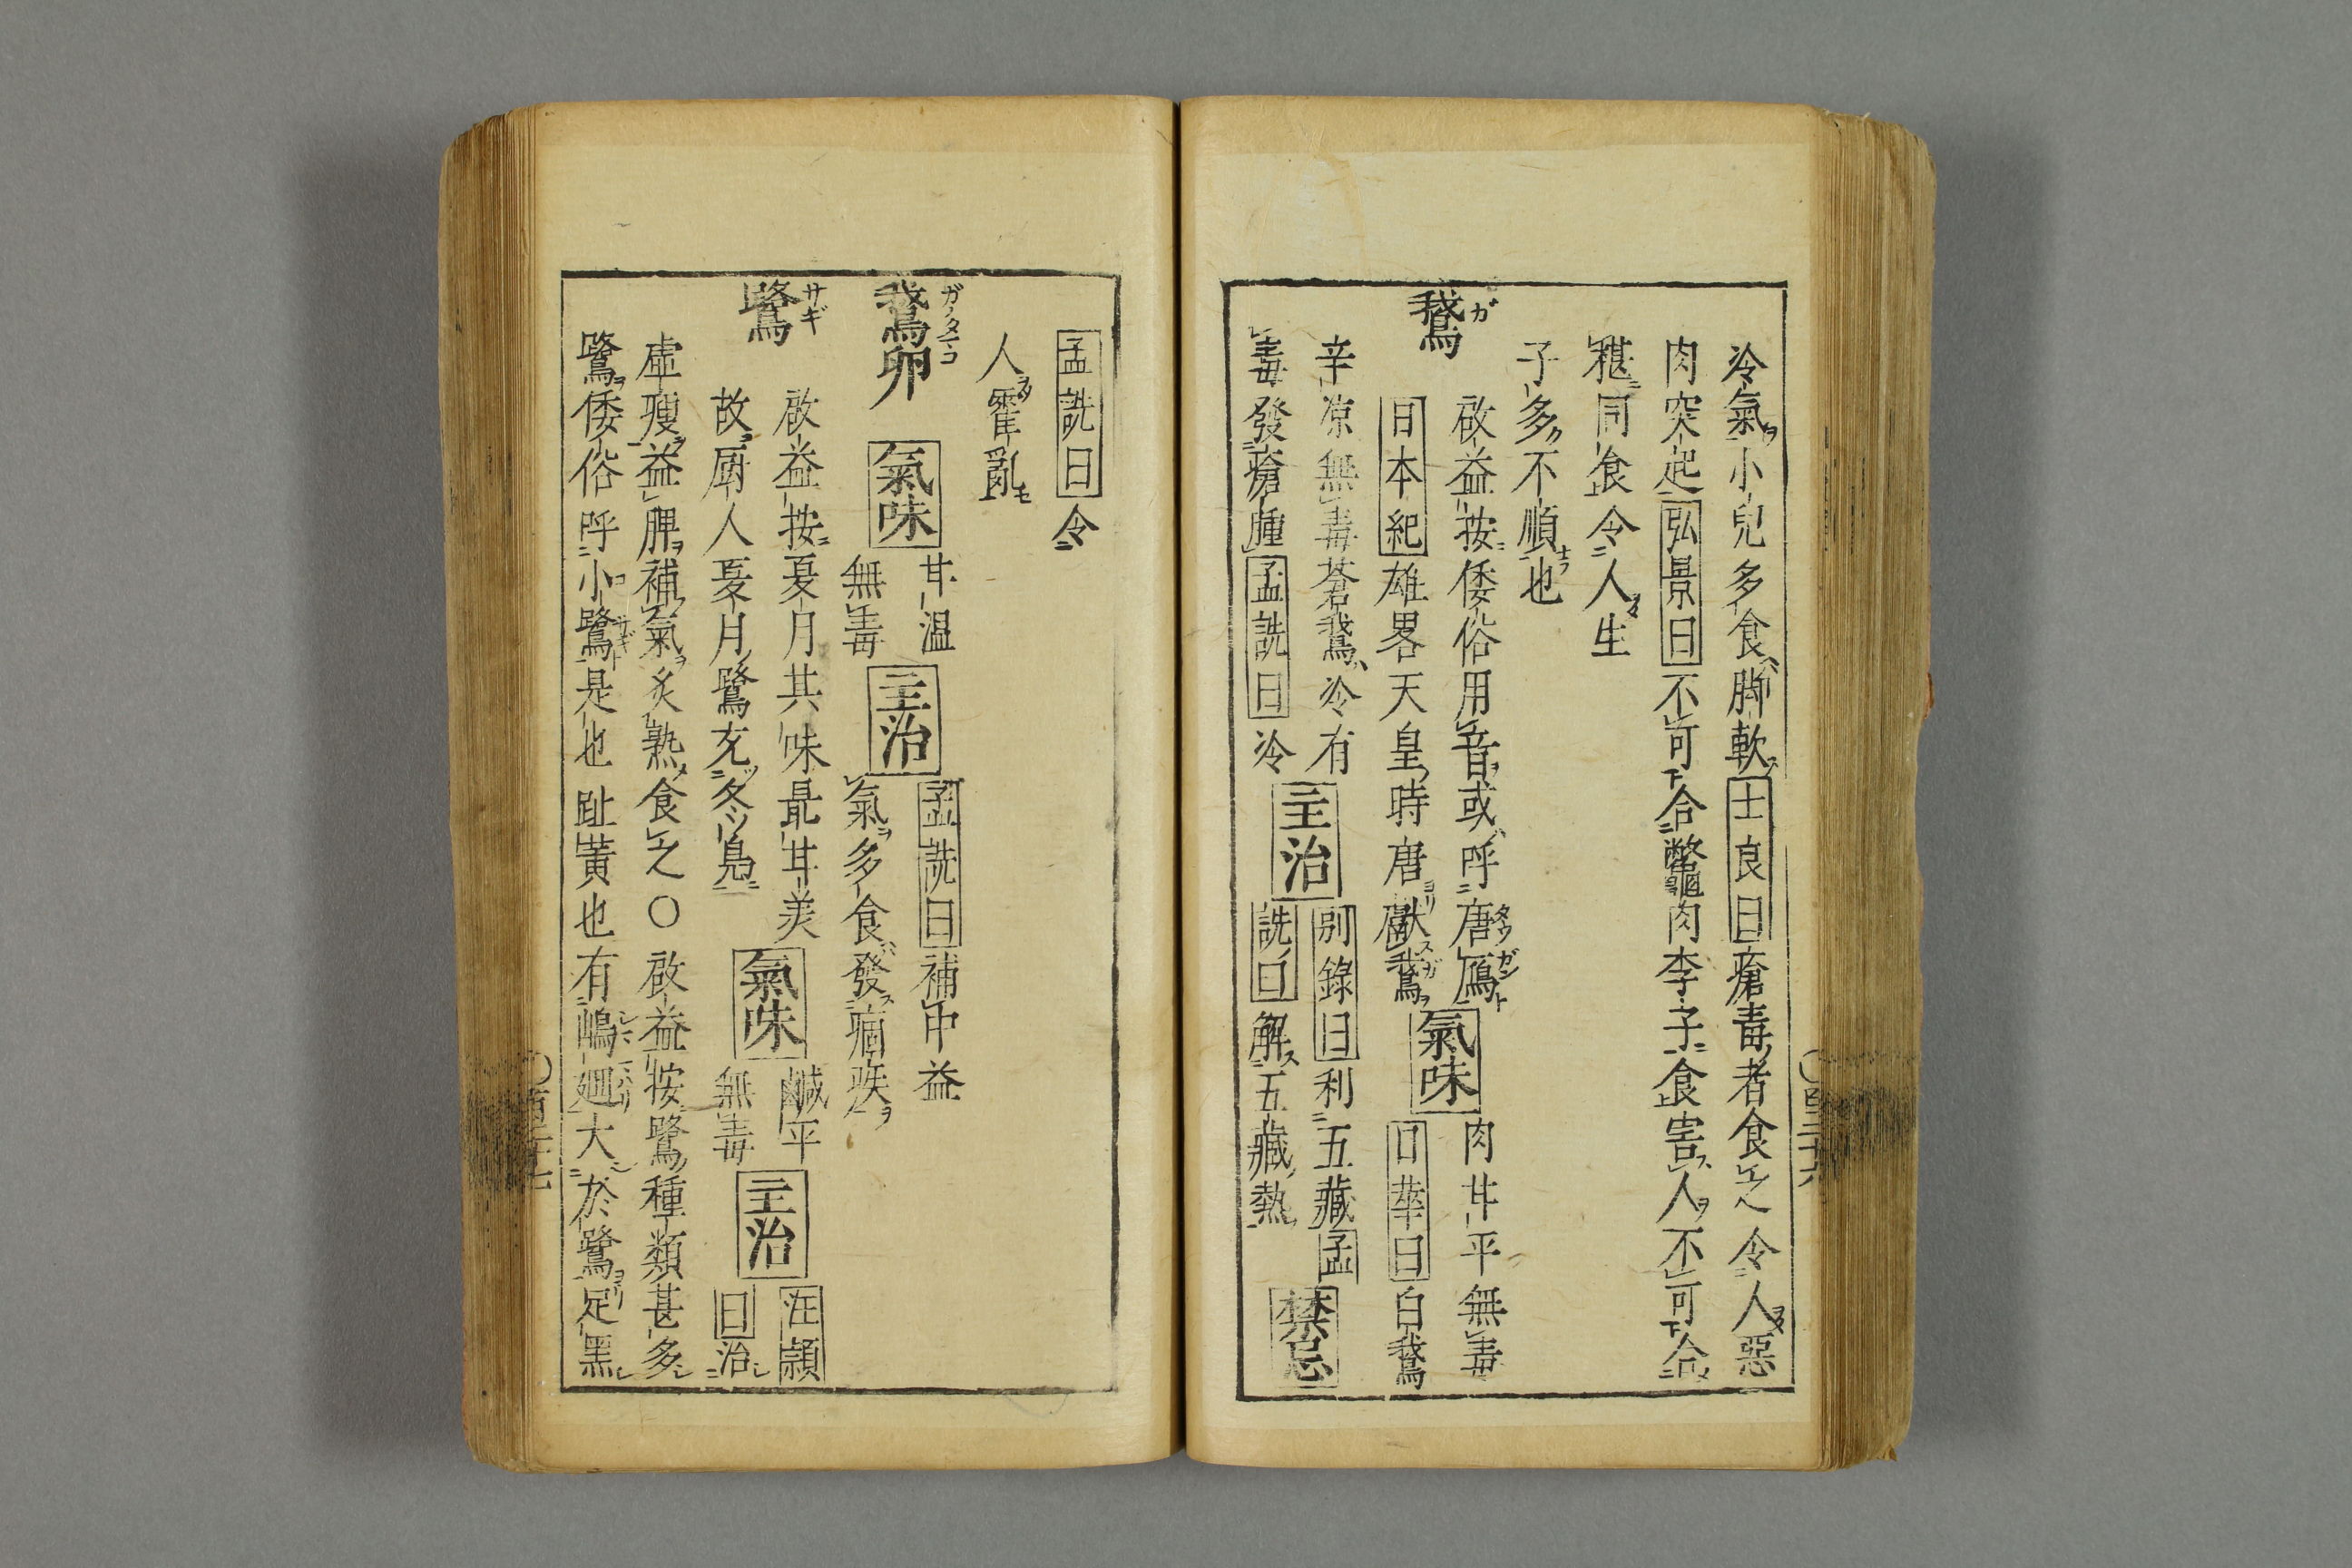 冷氣小兒多食脚軟士良曰瘡毒者食之令人惡
肉突起弘景曰不可合鼈肉李子食害人不可合
椹同食令人生
子多不順也
鵞
啟益按倭俗用音或呼唐鴈
日本紀雄畧天皇時唐獻鵞
氣味
肉甘平無毒
日華曰白鵞
辛凉無毒蒼鵞冷有
毒發瘡腫孟詵曰冷
主治
別錄曰利五藏孟
詵曰解五藏熱
禁忌
孟詵曰令
人霍亂
鵞卵
氣味
甘温
無毒
主治
孟詵曰補中益
氣多食發痼疾
鷺
啟益按夏月其味最甘美
故厨人夏月鷺充冬鳧
氣味
鹹平
無毒
主治
汪頴
曰治
虛瘦益脾補氣炙熟食之〇啟益按鷺種類甚多
鷺倭俗呼小鷺是也趾黃也有嶋廻大於鷺足黑